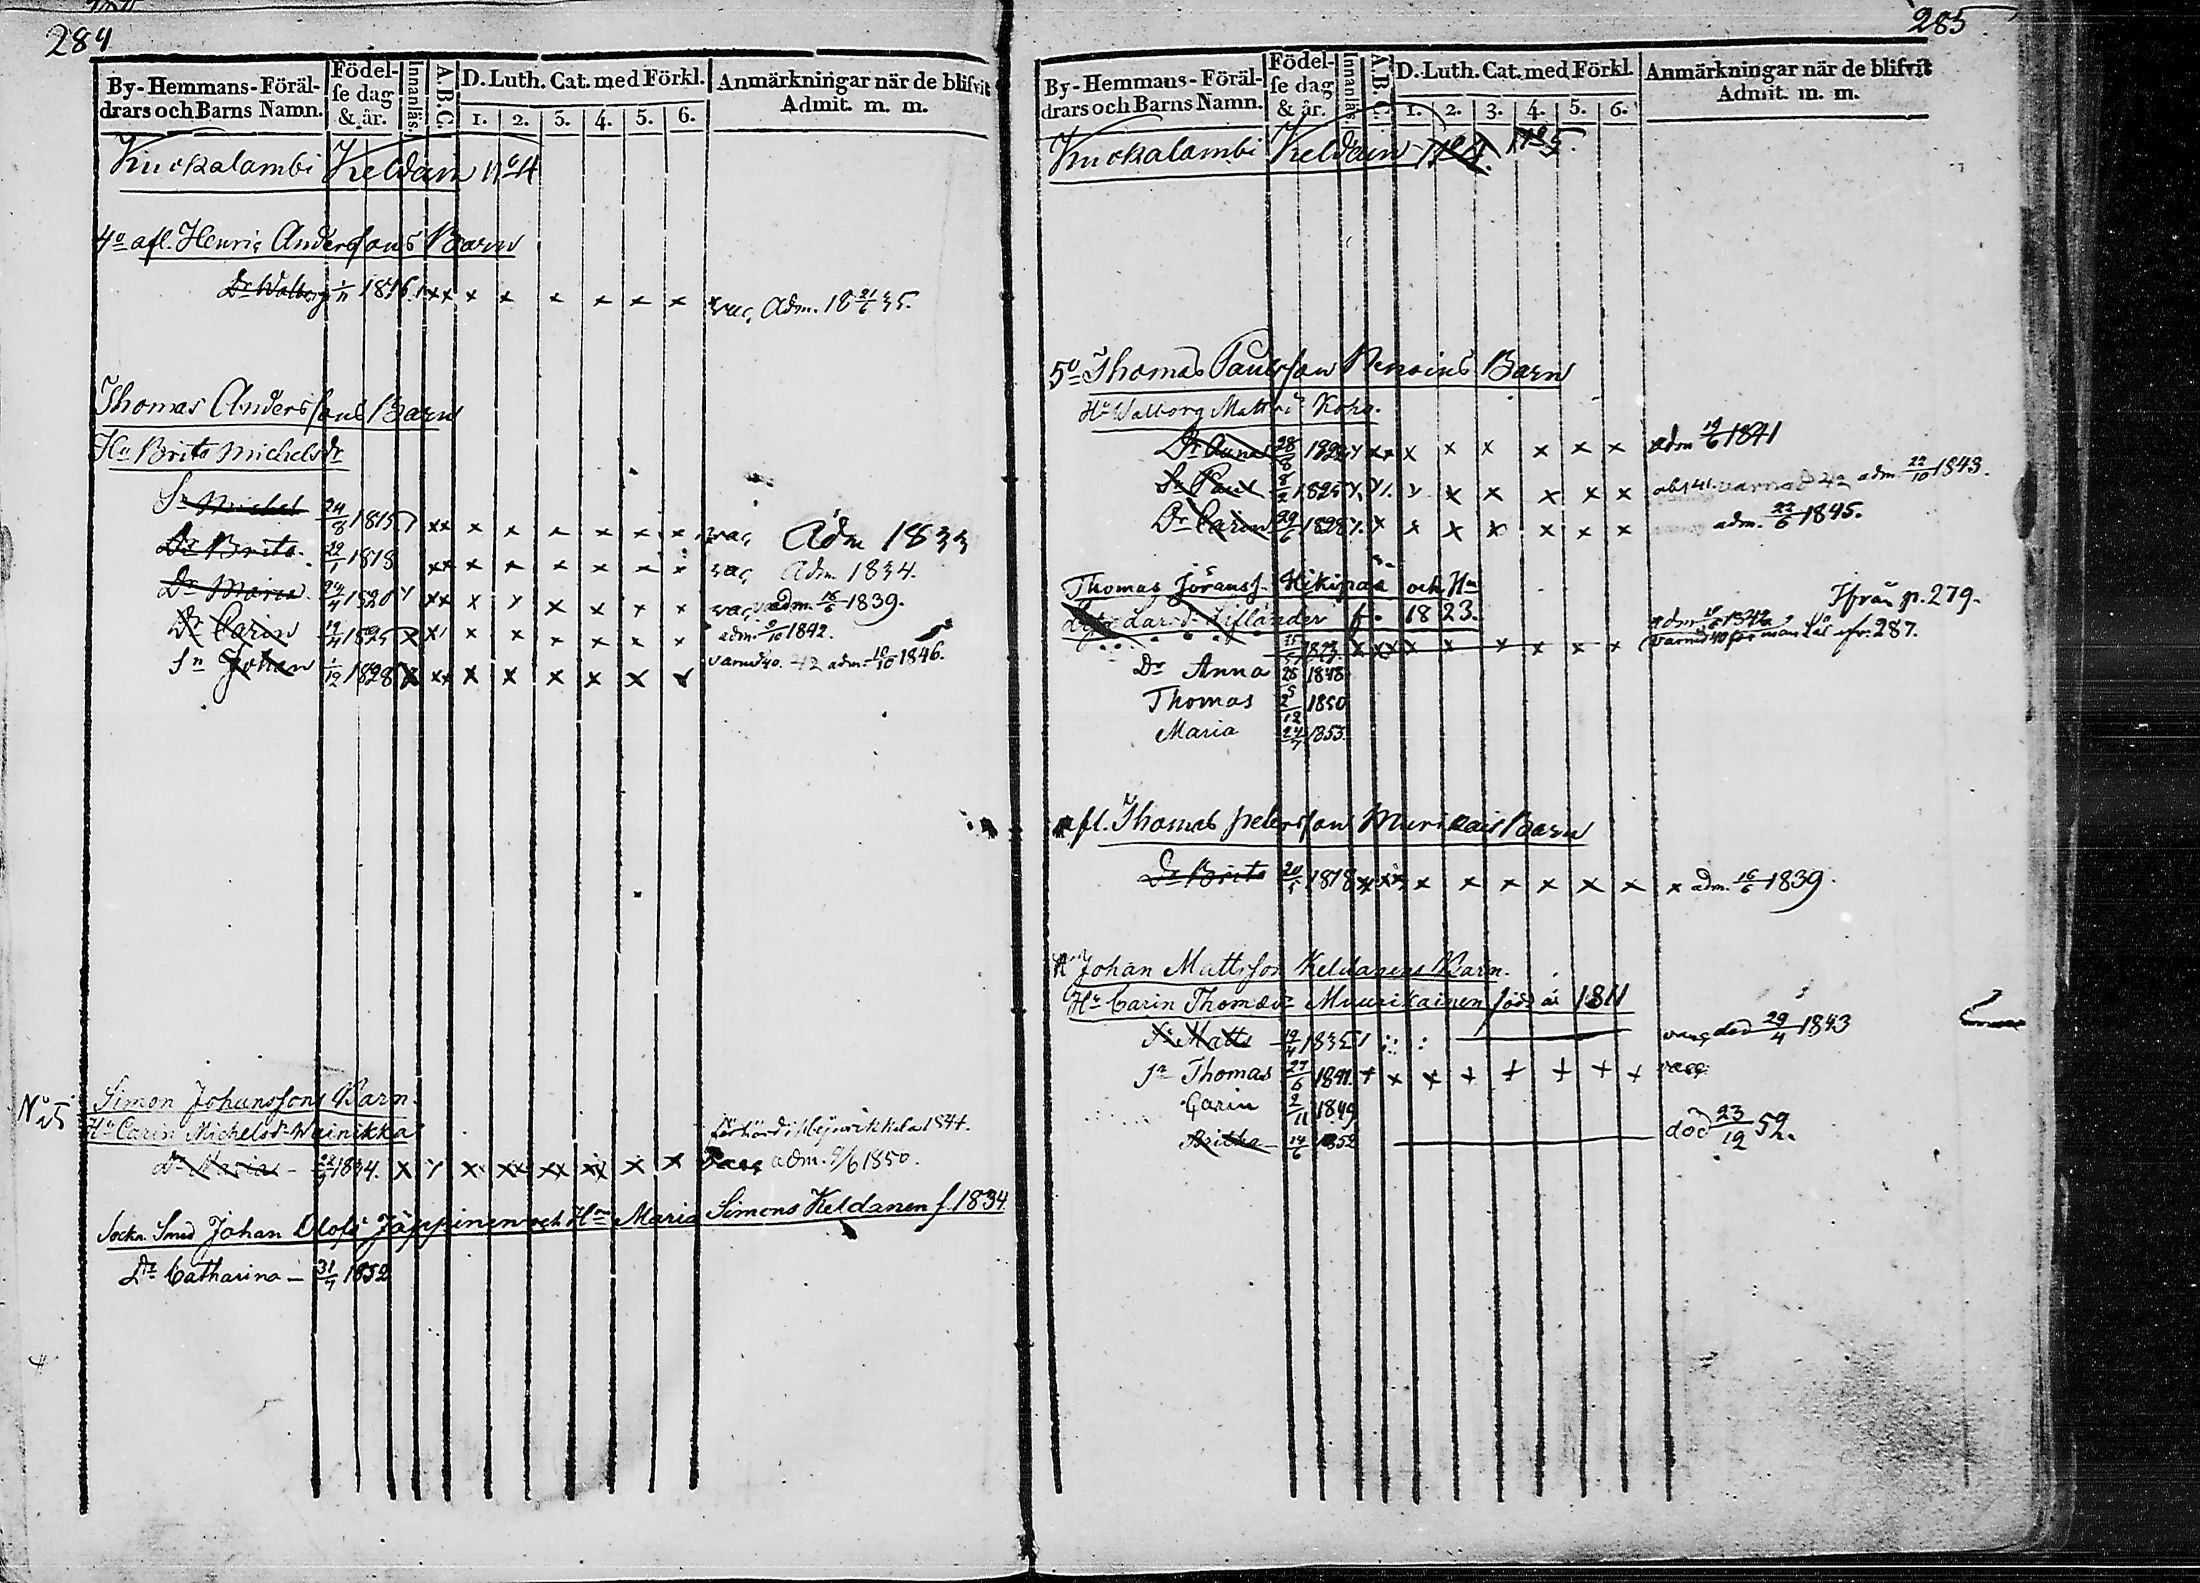 284
By-Hemmans-Föräl-
drars och Barns Namn.
Födel-
se dag
& år.
Innanläs.
A.B.C.
D. Luth. Cat. med Förkl.
1. 2. 3. 4. 5. 6.
Anmärkningar när de blifvit
Admit. m. m.
Kuckalambi Keldain No 4
4o afl. Henric Anderssons Barn
Dr Walborg 1/11 1816 x x x x x x x x vac. Adm. 18 21/6 35.
Thomas Anderssons Barn
Hu Brita Michelsdr
Sn Michel 24/8 1815 xx x x x x x x vac Adm 1833
Dr Brita 22/1 1818 xx x x x x x x vac Adm. 1834.
Dr Maria 24/4 1820 xx x x x x x x vac adm. 16/6 1839.
Dr Carin 19/4 1825 x x x x x x x x adm. 9/10 1842.
Sn Johan 1/12 1828 x xx x x x x x x varnad 40. 42 adm. 18/10 1846.
No 5
Simon Johanssons Barn
Hu Carin Michelsdr Wainikka
1844.
Dr Maria 1834. x x x xx xx x x adm. 9/6 1850.
Sockn Smed Johan Olofs Jäppinen och Hu Maria Simons Keldanen f. 1834
Dr Catharina 31/7 1852
285
By-Hemmans-Föräl-
drars och Barns Namn.
Födel-
se dag
& år.
Innanläs.
A.B.C.
D. Luth. Cat. med Förkl.
1. 2. 3. 4. 5. 6.
Anmärkningar när de blifvit
Admit. m. m.
Kuckalambi Keldain No 4. No 5.
5o Thomas Paulsson Barn
Hu Walborg Mattsdr
Dr Anna 28/8 x x x x x x adm 19/6 1841
Sn Paul 1825 x x x x x varnad 42 adm. 22/10 1843.
Dr Carin 29/6 1828 x x x x x x x adm. 22/6 1845.
Thomas Göranss. Hikipää och Hu
Lars dr Lifländer f. 1823.
Ifrån p. 279.
1823. x xx x x x x x x 287.
Dr Anna 25/5 1848
Thomas 2/12 1850
Maria 24/7 1853.
afl. Thomas Peterssons Murikais Barn
Dr Brita 20/5 1818 x xx x x x x x x x adm. 16/6 1839.
Johan Mattsson Keldanens Barn.
Hu Carin Thomædr Muurikainen född år 1811
Sn Matts 19/4 1835 död 29/4 1843
Sn Thomas 27/6 1841. + x x + + + + +
Carin 2/11 1849
Britha 14/6 1852 död 23/12 52.